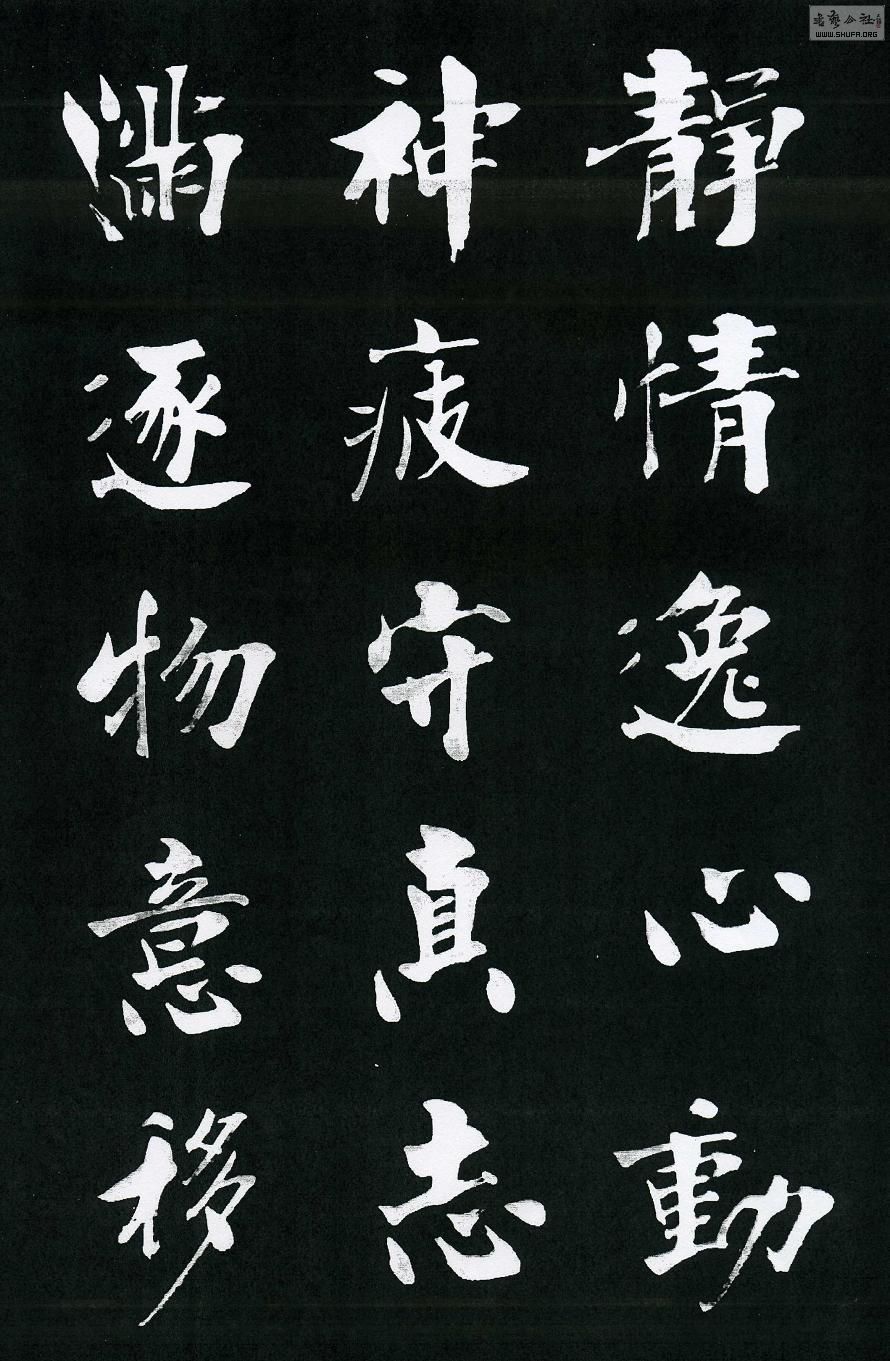 靜情逸心動
神疲守真志
滿逐物意移
WWW.SHUFA.ORG